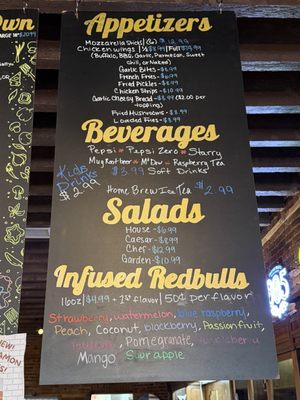 Own
LARGE 14" $20.99
Appetizers
Mozzarella Sticks / (6) $12.99
Chicken wings / ½ $8.99 / Full $19.99
(Buffalo, BBQ, Garlic, Parmesan, Sweet
chili, or Naked)
Garlic Bites - $6.99
French Fries - $6.99
Fried Pickles - $8.99
Chicken Strips - $10.99
Garlic Cheesy Bread - $8.99 ($2.00 per
topping)
Fried Mushrooms - $8.99
Loaded Fries - $8.99
Beverages
Pepsi Pepsi Zero Starry
Mug Root beer Mt Dew Raspberry Tea
$3.99 Soft Drinks
Kids
Drinks
$2.99
Home Brew Ice Tea $2.99
Salads
House - $6.99
Caesar - $8.99
Chef - $12.99
Garden - $10.99
Infused Redbulls
16oz / $4.99 - 1st flavor / 50¢ per flavor
Strawberry, watermelon, blue raspberry,
Peach, Coconut, blackberry, Passionfruit
Pomegranate,
Mango Sour apple
NEW!